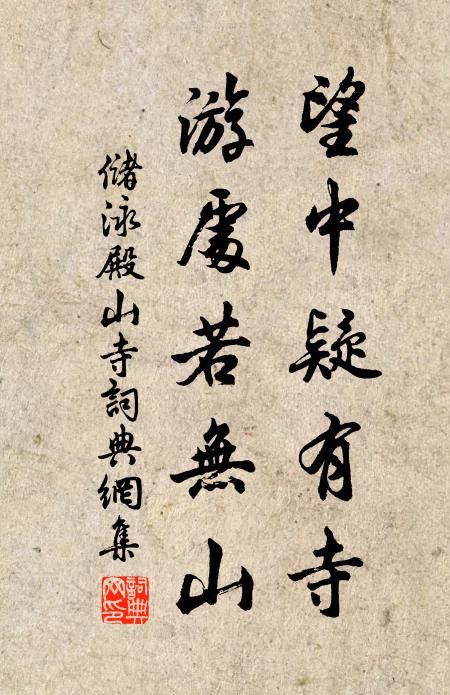 望中疑有寺
游處若無山
儲泳殿山寺詞典網集
詞典網印